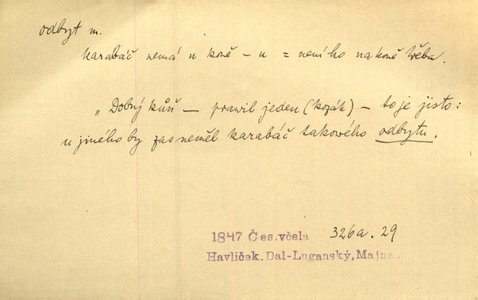 odbyt m.
karabáč nemá u koně – u = není ho na koně třeba.
„Dobrý kůň – pravil jeden (kozák) – to je jisto:
u jiného by zas neměl karabáč takového odbytu.
1847 Čes.včela 326a. 29
Havlíček, Dal-Luganský, Majna.